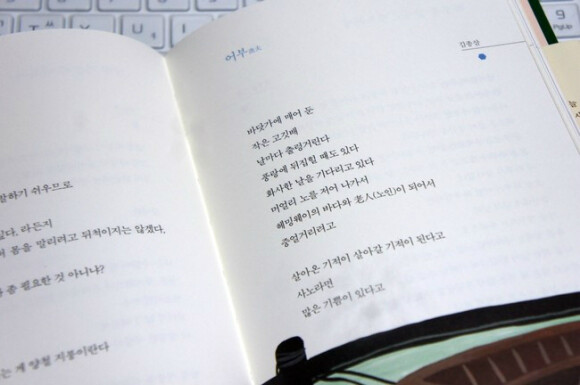 쉬우므로
라든지
몸을 말리려고 뒤척이지는 않겠다.
좀 필요한 것 아니냐?
는 게 양철 지붕이란다
어부
김종삼
바닷가에 매어 둔
작은 고깃배
날마다 출렁거린다
풍랑에 뒤집힐 때도 있다
화사한 날을 기다리고 있다
머얼리 노를 저어 나가서
헤밍웨이의 바다와 老人(노인)이 되어서
중얼거리려고
살아온 기적이 살아갈 기적이 된다고
사노라면
많은 기쁨이 있다고
9
PgUp